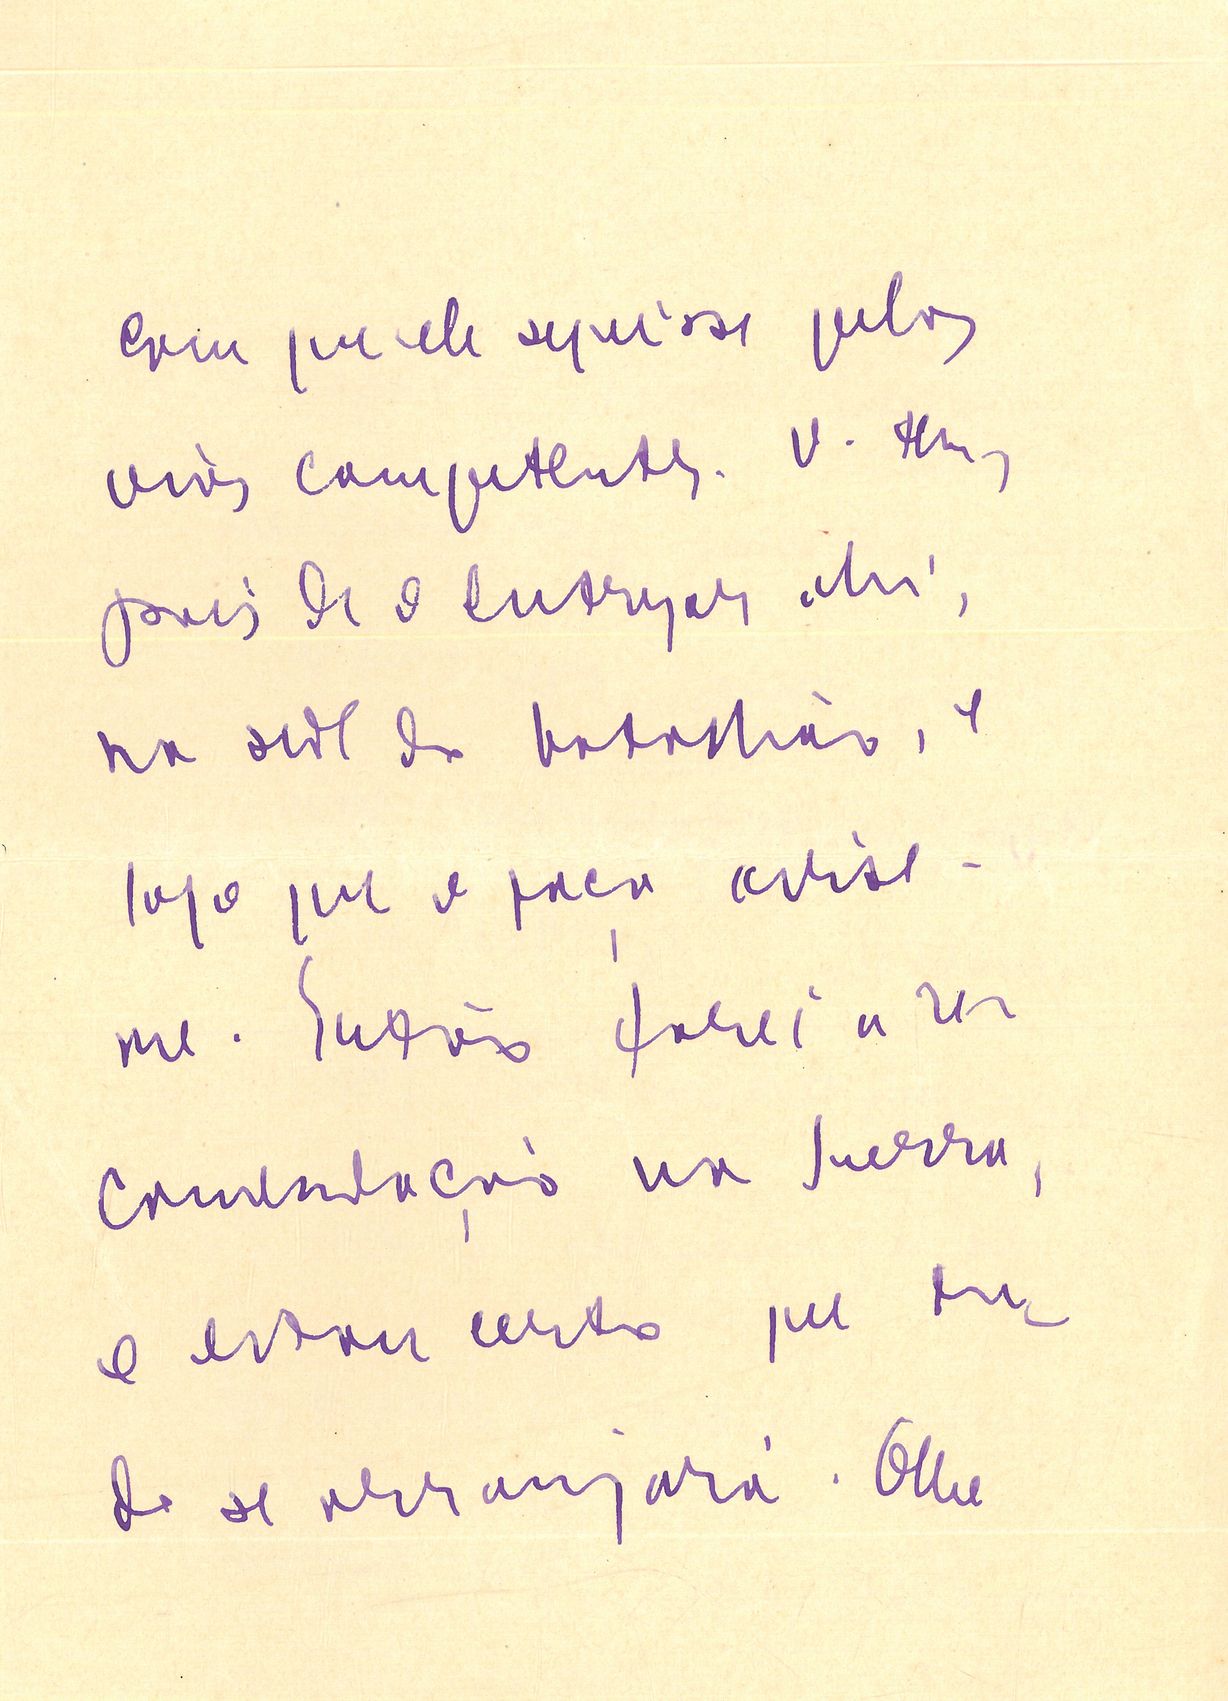 com que ele seguisse pelas
vias competentes. V. tem,
pois de o entregar ahi,
na sede do batalhão, e
logo que o faça avise-
me. Então farei a re
comendação na Guerra,
e estou certo que tu
do se arranjará. Olhe